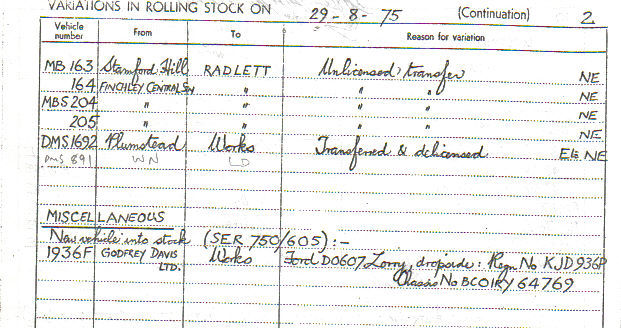 VARIATIONS IN ROLLING STOCK ON 29-8-75 (Continuation) 2
Vehicle number From To Reason for variation
MB 163 Stamford Hill RADLETT Unlicensed transfer NE
164 FINCHLEY CENTRAL STN " " " NE
MBS 204 " " " " NE
205 " " " " NE
DMS 1692 Plumstead Works Transferred & delicensed Ele NE
DMS 891 WN LD
MISCELLANEOUS
New vehicle into stock (SER 750/605) :-
1936F GODFREY DAVIS LTD. Works Ford D0607 Lorry, dropside: Regn No KJD 936P
Chassis No BC01RY 64769